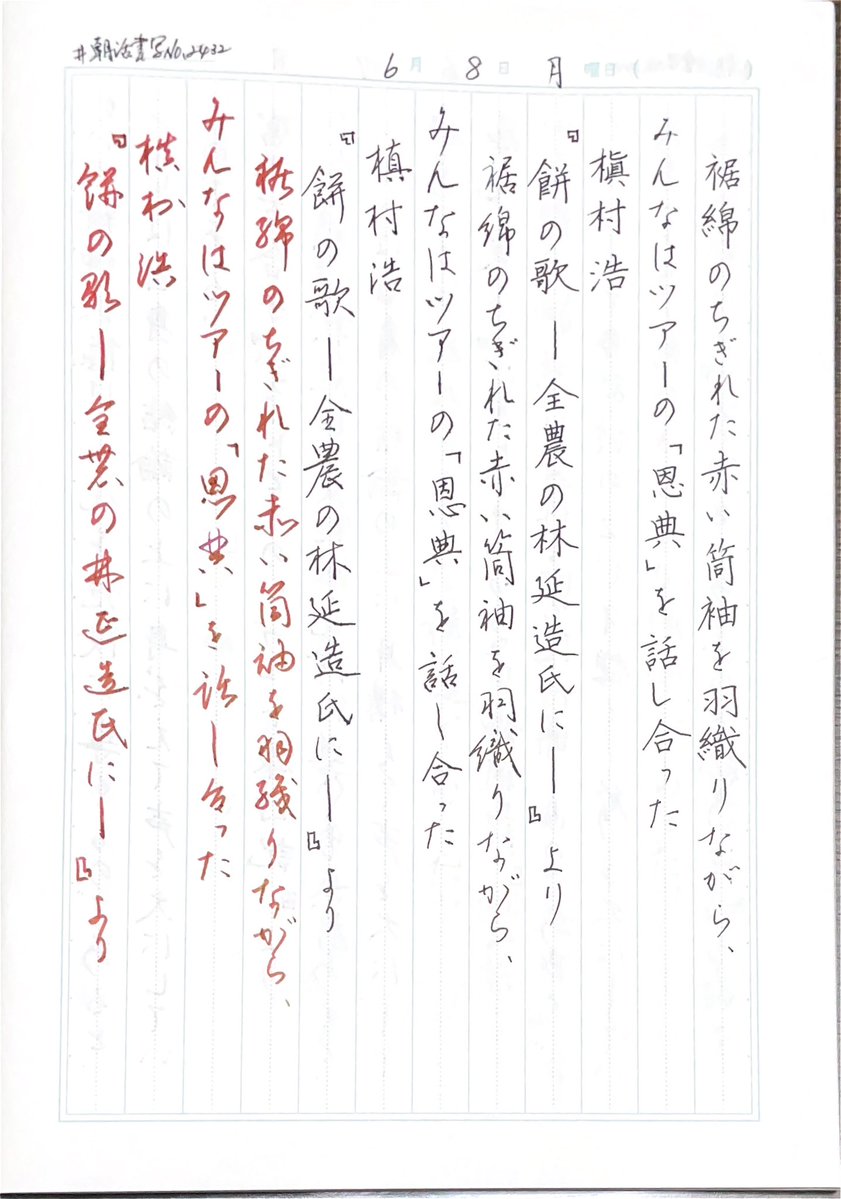 #朝活書写No.2432
6月8日月曜日( )
裾綿のちぎれた赤い筒袖を羽織りながら、
みんなはツアーの「恩典」を話し合った
槇村浩
『餅の歌―全農の林延造氏に―』より
裾綿のちぎれた赤い筒袖を羽織りながら、
みんなはツアーの「恩典」を話し合った
槇村浩
『餅の歌―全農の林延造氏に―』より
裾綿のちぎれた赤い筒袖を羽織りながら、
みんなはツアーの「恩典」を話し合った
槇村浩
『餅の歌―全農の林延造氏に―』より